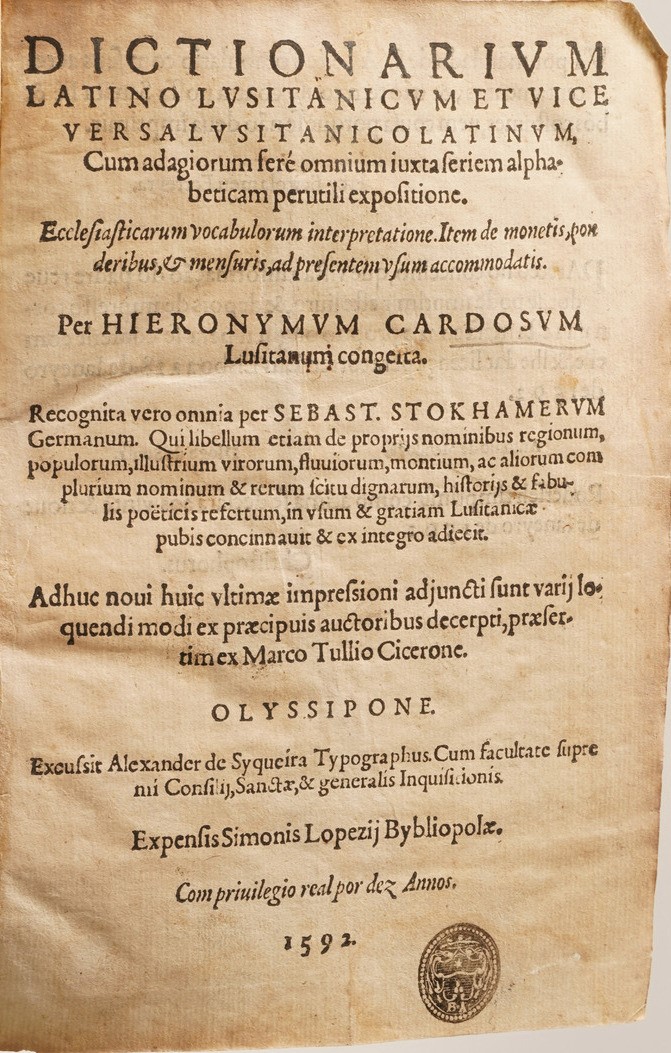 DICTIONARIVM
LATINO LVSITANICVM ET VICE
VERSA LVSITANICO LATINVM,
Cum adagiorum feré omnium iuxta ſeriem alpha-
beticam perutili expoſitione.
Eccleſiaſticarum vocabulorum interpretatione. Item de monetis, pon
deribus, & menſuris, ad preſentem vſum accommodatis.
Per HIERONYMVM CARDOSVM
Luſitanum congeſta.
Recognita vero omnia per SEBAST. STOKHAMERVM
Germanum. Qui libellum etiam de proprijs nominibus regionum,
populorum, illuſtrium virorum, fluuiorum, montium, ac aliorum com
plurium nominum & rerum ſcitu dignarum, hiſtorijs & fabu-
lis poëticis refertum, in vſum & gratiam Luſitanicæ
pubis concinnauit & ex integro adiecit.
Adhuc noui huic vltimæ impreſsioni adjuncti ſunt varij lo-
quendi modi ex præcipuis auctoribus decerpti, præſer-
tim ex Marco Tullio Cicerone.
OLYSSIPONE.
Excuſsit Alexander de Syqueira Typographus. Cum facultate ſupre
mi Conſilij, Sanctæ, & generalis Inquiſitionis.
Expenſis Simonis Lopezij Bybliopolæ.
Com priuilegio real por dez Annos.
1592.